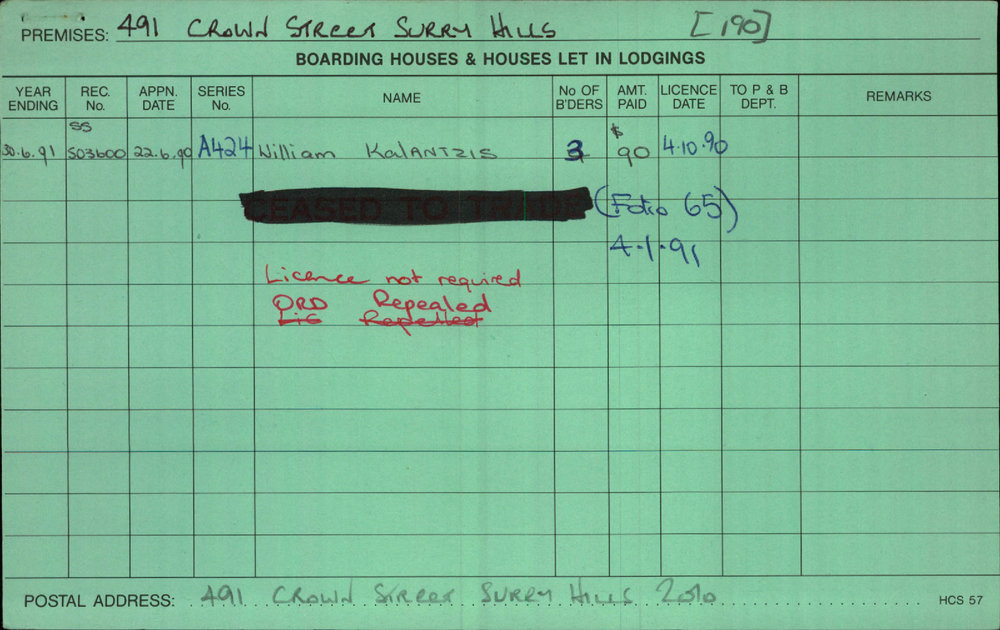 PREMISES: 491 CROWN STREET SURRY HILLS [190]
BOARDING HOUSES & HOUSES LET IN LODGINGS
YEAR ENDING REC. No. APPN. DATE SERIES No. NAME No OF B'DERS AMT. PAID LICENCE DATE TO P & B DEPT. REMARKS
SS $
30.6.91 503600 22.6.90 A424 William KALANTZIS 3 90 4.10.90
CEASED TO (Folio 65)
4.1.91
Licence not required
ORD Repealed
LiC Repelled
POSTAL ADDRESS: 491 CROWN STREET SURRY HILLS 2010 HCS 57